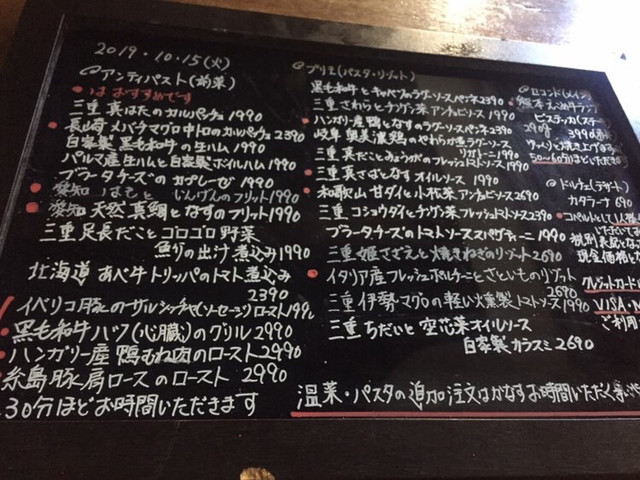 2019.10.15(火)
@アンティパスト(前菜)
●はおすすめです
三重 真はたのカルパッチョ 1990
●長崎 メバチマグロ中トロのカルパッチョ 2390
自家製 黒毛和牛の生ハム 1990
パルマ産生ハムと自家製ボイルハム 1990
ブラータチーズのカプレーゼ 1990
●愛知 はもと いんげんのフリット1990
●愛知 天然真鯛となすのフリット1990
三重足長だことゴロゴロ野菜
魚介の出汁煮込み1990
北海道 あべ牛トリッパのトマト煮込み
2390
イベリコ豚のサルシッチャ(ソーセージ)ロースト
●黒毛和牛ハツ(心臓)のグリル 2990
●ハンガリー産鴨むね肉のロースト 2990
●糸島豚肩ロースのロースト 2990
30分ほどお時間いただきます
@プリモ(パスタ・リゾット)
黒毛和牛とキャベツのラグーソースペンネ2390
三重さわらとチンゲン菜アンチョビソース 1990
●ハンガリー産鴨となすのラグーソースペンネ2390
岐阜 奥美濃鶏のやわらか煮ラグーソース
リガトーニ 1990
三重真だことみょうがのフレッシュトマトソース 1990
●三重真さばとなす オイルソース 1990
●和歌山 甘ダイと小松菜 アンチョビソース2690
三重 コショウダイとチンゲン菜フレッシュトマトソース2690
ブラータチーズのトマトソーススパゲティーニ 1990
三重姫さざえと焼きねぎのリゾット 2690
●イタリア産フレッシュポルチーニとさといものリゾット
2690
三重 伊勢マグロの軽い燻製トマトソース1990
三重ちだいと 空芯菜オイルソース
自家製カラスミ 2690
温菜・パスタの追加注文はかなりお時間いただく
@セコンド(メイン)
ビステッカ
290g 3990
ゆっくりと焼き上げ
50~60分ほどいただき
@ドルチェ(デザート)
カタラーナ 690
●コペルトとして1人様
税別表記
現金価格
クレジットカード
VISA・M
ご利用